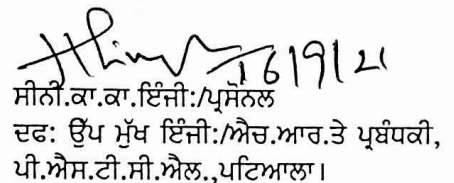 16/9/21
ਸੀਨੀ.ਕਾ.ਕਾ.ਇੰਜੀ:/ਪ੍ਰਸੋਨਲ
ਦਫ: ਉੱਪ ਮੁੱਖ ਇੰਜੀ:/ਐਚ.ਆਰ.ਤੇ ਪ੍ਰਬੰਧਕੀ,
ਪੀ.ਐਸ.ਟੀ.ਸੀ.ਐਲ.,ਪਟਿਆਲਾ।